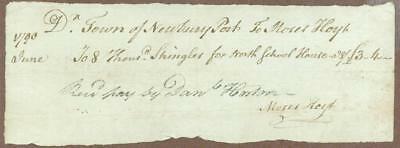 Dr Town of Newbury Port To Moses Hoyt
1790
June To 8 Thousd Shingles for North School House £3-4-
Recd pay by Danl
Moses Hoyt